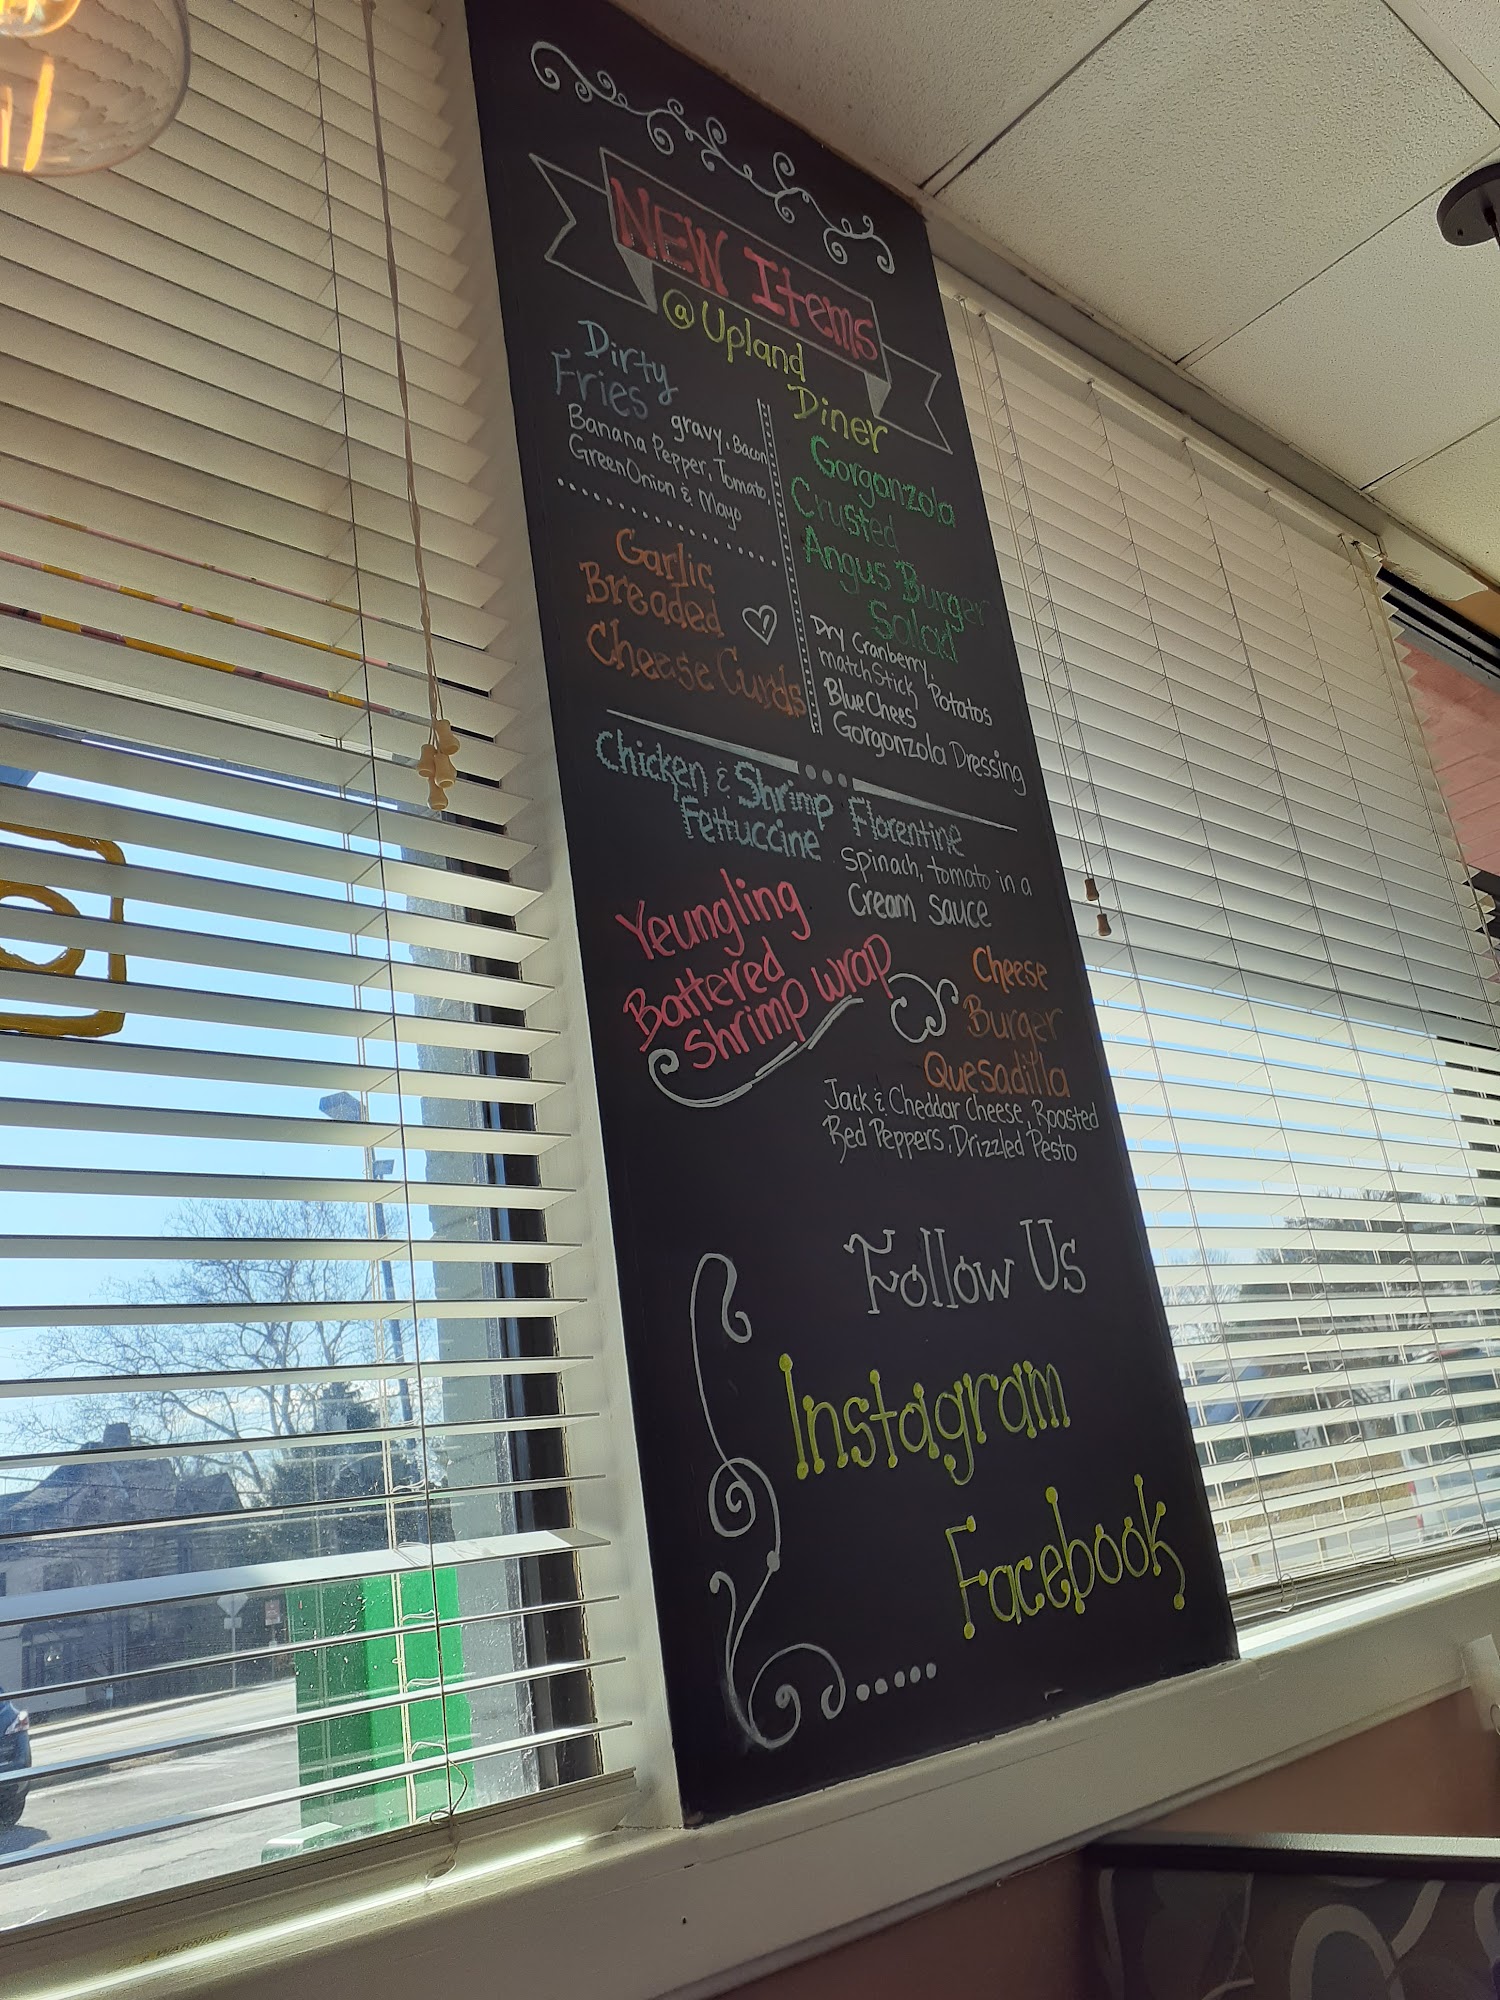 NEW Items
@ Upland
Diner
Dirty
Fries
gravy, Bacon
Banana Pepper, Tomato,
Green Onion & Mayo
Garlic
Breaded
Cheese Curds
Gorgonzola
Crusted
Angus Burger
Salad
Dry Cranberry,
matchStick Potatos
Blue Chees
Gorgonzola Dressing
Chicken & Shrimp Florentine
Fettuccine
Spinach, tomato in a
Cream sauce
Yeungling
Battered
shrimp wrap
Cheese
Burger
Quesadilla
Jack & Cheddar Cheese, Roasted
Red Peppers, Drizzled Pesto
Follow Us
Instagram
Facebook